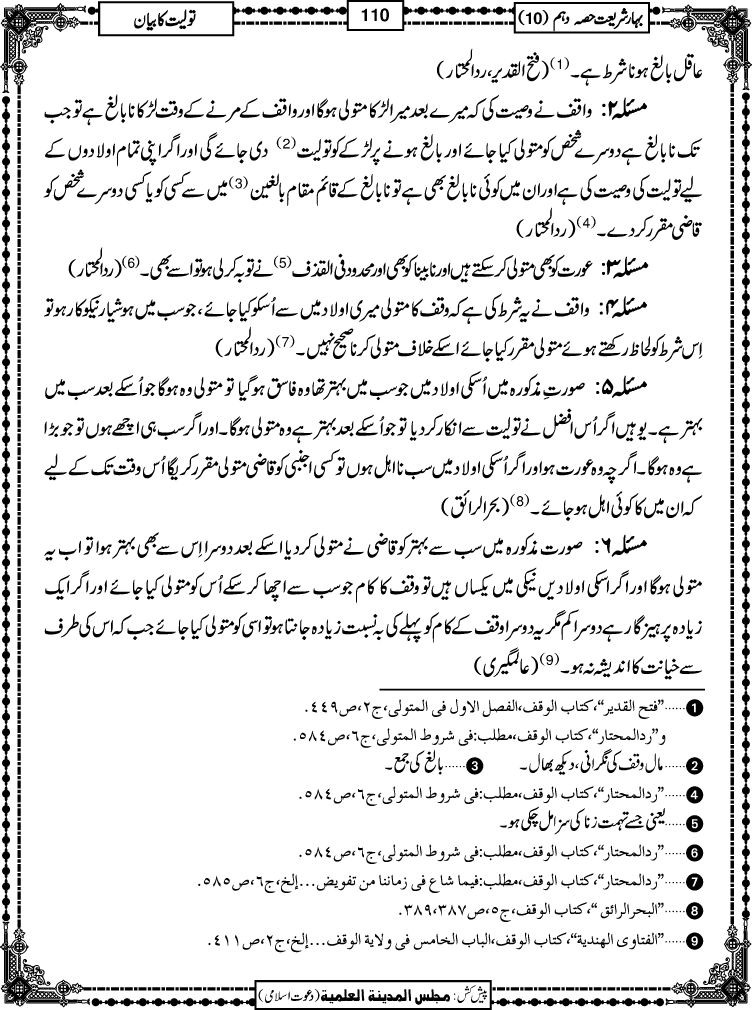 بہارِشریعت حصہ دہم (10)
110
تولیت کا بیان
عاقل بالغ ہونا شرط ہے۔(1) (فتح القدیر، ردالمحتار)
مسئلہ ۲: واقف نے وصیت کی کہ میرے بعد میرا لڑکا متولی ہوگا اور واقف کے مرنے کے وقت لڑکا نابالغ ہے تو جب
تک نابالغ ہے دوسرے شخص کو متولی کیا جائے اور بالغ ہونے پر لڑکے کو تولیت(2) دی جائے گی اور اگر اپنی تمام اولادوں کے
لیے تولیت کی وصیت کی ہے اور ان میں کوئی نابالغ بھی ہے تو نابالغ کے قائم مقام بالغین(3) میں سے کسی کو یا کسی دوسرے شخص کو
قاضی مقرر کردے۔(4) (ردالمحتار)
مسئلہ ۳: عورت کو بھی متولی کرسکتے ہیں اور نابینا کو بھی اور محدود فی القذف(5) نے توبہ کرلی ہو تو اسے بھی۔(6) (ردالمحتار)
مسئلہ ۴: واقف نے یہ شرط کی ہے کہ وقف کا متولی میری اولاد میں سے اُسکو کیا جائے، جو سب میں ہوشیار نیکوکار ہو تو
اِس شرط کو لحاظ رکھتے ہوئے متولی مقرر کیا جائے اسکے خلاف متولی کرنا صحیح نہیں۔(7) (ردالمحتار)
مسئلہ ۵: صورتِ مذکورہ میں اُسکی اولاد میں جو سب میں بہتر تھا وہ فاسق ہوگیا تو متولی وہ ہوگا جو اُسکے بعد سب میں
بہتر ہے۔ یوہیں اگر اُس افضل نے تولیت سے انکار کردیا تو جو اُسکے بعد بہتر ہے وہ متولی ہوگا۔ اور اگر سب ہی اچھے ہوں تو جو بڑا
ہے وہ ہوگا۔ اگرچہ وہ عورت ہو اور اگر اُسکی اولاد میں سب نااہل ہوں تو کسی اجنبی کو قاضی متولی مقرر کریگا اُس وقت تک کے لیے
کہ ان میں کا کوئی اہل ہوجائے۔(8) (بحرالرائق)
مسئلہ ۶: صورت مذکورہ میں سب سے بہتر کو قاضی نے متولی کردیا اسکے بعد دوسرا اِس سے بھی بہتر ہوا تو اب یہ
متولی ہوگا اور اگر اسکی اولادیں نیکی میں یکساں ہیں تو وقف کا کام جو سب سے اچھا کرسکے اُس کو متولی کیا جائے اور اگر ایک
زیادہ پرہیزگار ہے دوسرا کم مگر یہ دوسرا وقف کے کام کو پہلے کی بہ نسبت زیادہ جانتا ہو تو اسی کو متولی کیا جائے جب کہ اس کی طرف
سے خیانت کا اندیشہ نہ ہو۔(9) (عالمگیری)
1......”فتح القدیر“، کتاب الوقف، الفصل الاول فی المتولی، ج۲، ص۴۴۹.
و”ردالمحتار“، کتاب الوقف، مطلب: فی شروط المتولی، ج۶، ص۵۸۴.
2......مال وقف کی نگرانی، دیکھ بھال۔ 3......بالغ کی جمع۔
4......”ردالمحتار“، کتاب الوقف، مطلب: فی شروط المتولی، ج۶، ص۵۸۴.
5......یعنی جسے تہمت زنا کی سزا مل چکی ہو۔
6......”ردالمحتار“، کتاب الوقف، مطلب: فی شروط المتولی، ج۶، ص۵۸۴.
7......”ردالمحتار“، کتاب الوقف، مطلب: فیما شاع فی زماننا من تفویض...إلخ، ج۶، ص۵۸۵.
8......”البحرالرائق“، کتاب الوقف، ج۵، ص۳۸۷،۳۸۹.
9......”الفتاوی الهندیة“، کتاب الوقف، الباب الخامس فی ولایة الوقف...إلخ، ج۲، ص۴۱۱.
پیش کش: مجلس المدینة العلمیة (دعوت اسلامی)